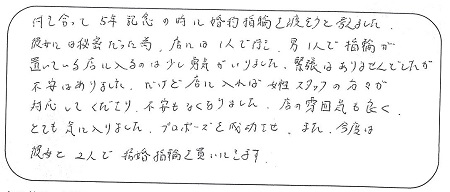 付き合って5年記念の時に婚約指輪を渡そうと考えました。
彼女には秘密だった為、店には1人で行き、男1人で指輪が
置いている店に入るのは少し勇気がいりました。緊張はありませんでしたが
不安はありました。だけど店に入れば女性スタッフの方々が
対応してくださり、不安もなくなりました。店の雰囲気も良く、
とても気に入りました。プロポーズを成功させ、また、今度は
彼女と2人で結婚指輪を買いにきます。